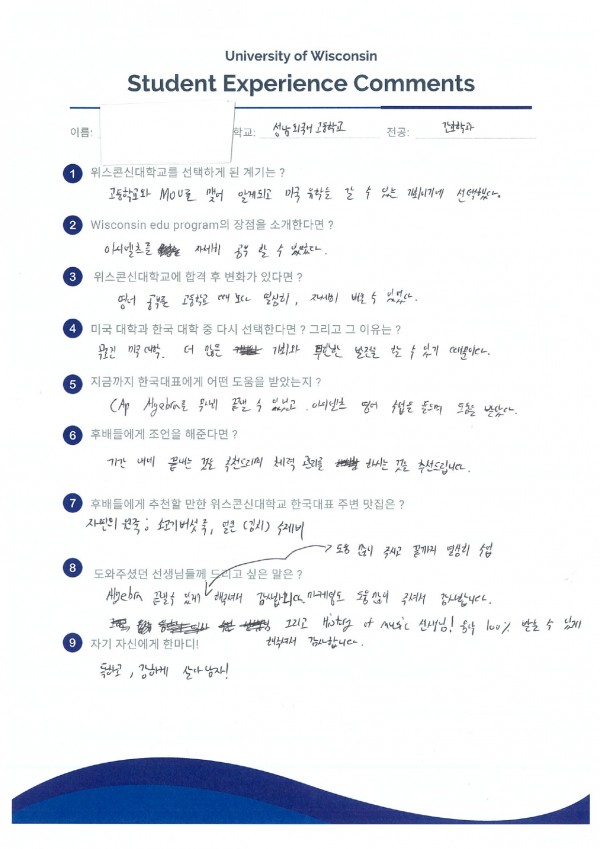 University of Wisconsin
Student Experience Comments
이름: 학교: 성남외국어 고등학교 전공: 간호학과
1 위스콘신대학교를 선택하게 된 계기는 ?
고등학교와 MOU로 맺어 알게되고 미국 유학을 갈 수 있는 기회이기에 선택했다.
2 Wisconsin edu program의 장점을 소개한다면 ?
아이엘츠를 자세히 공부 할 수 있었다.
3 위스콘신대학교에 합격 후 변화가 있다면 ?
영어 공부를 고등학교 때 보다 열심히, 자세히 배울 수 있었다.
4 미국 대학과 한국 대학 중 다시 선택한다면 ? 그리고 그 이유는 ?
무조건 미국 대학. 더 많은 기회와 무한한 발전을 할 수 있기 때문이다.
5 지금까지 한국대표에게 어떤 도움을 받았는지 ?
CAp Algebra를 무사히 끝낼 수 있었고 아이엘츠 영어 수업을 들으며 도움을 받았다.
6 후배들에게 조언을 해준다면 ?
기간 내에 끝내는 것을 추천드리며 체력 관리를 하시는 것을 추천드립니다.
7 후배들에게 추천할 만한 위스콘신대학교 한국대표 주변 맛집은 ?
자린의 원족 : 소고기버섯죽, 얼큰 (김치) 수제비
8 도와주셨던 선생님들께 드리고 싶은 말은 ?
도움 주시고 끝까지 열정히 수업
Algebra 끝낼수 있게 해주셔서 감사합니다. 마케팅도 도움 주셔서 감사합니다.
그리고 History of Music 선생님! 음악 100% 받을 수 있게
해주셔서 감사합니다.
9 자기 자신에게 한마디!
독하고, 강하게 살아남자!